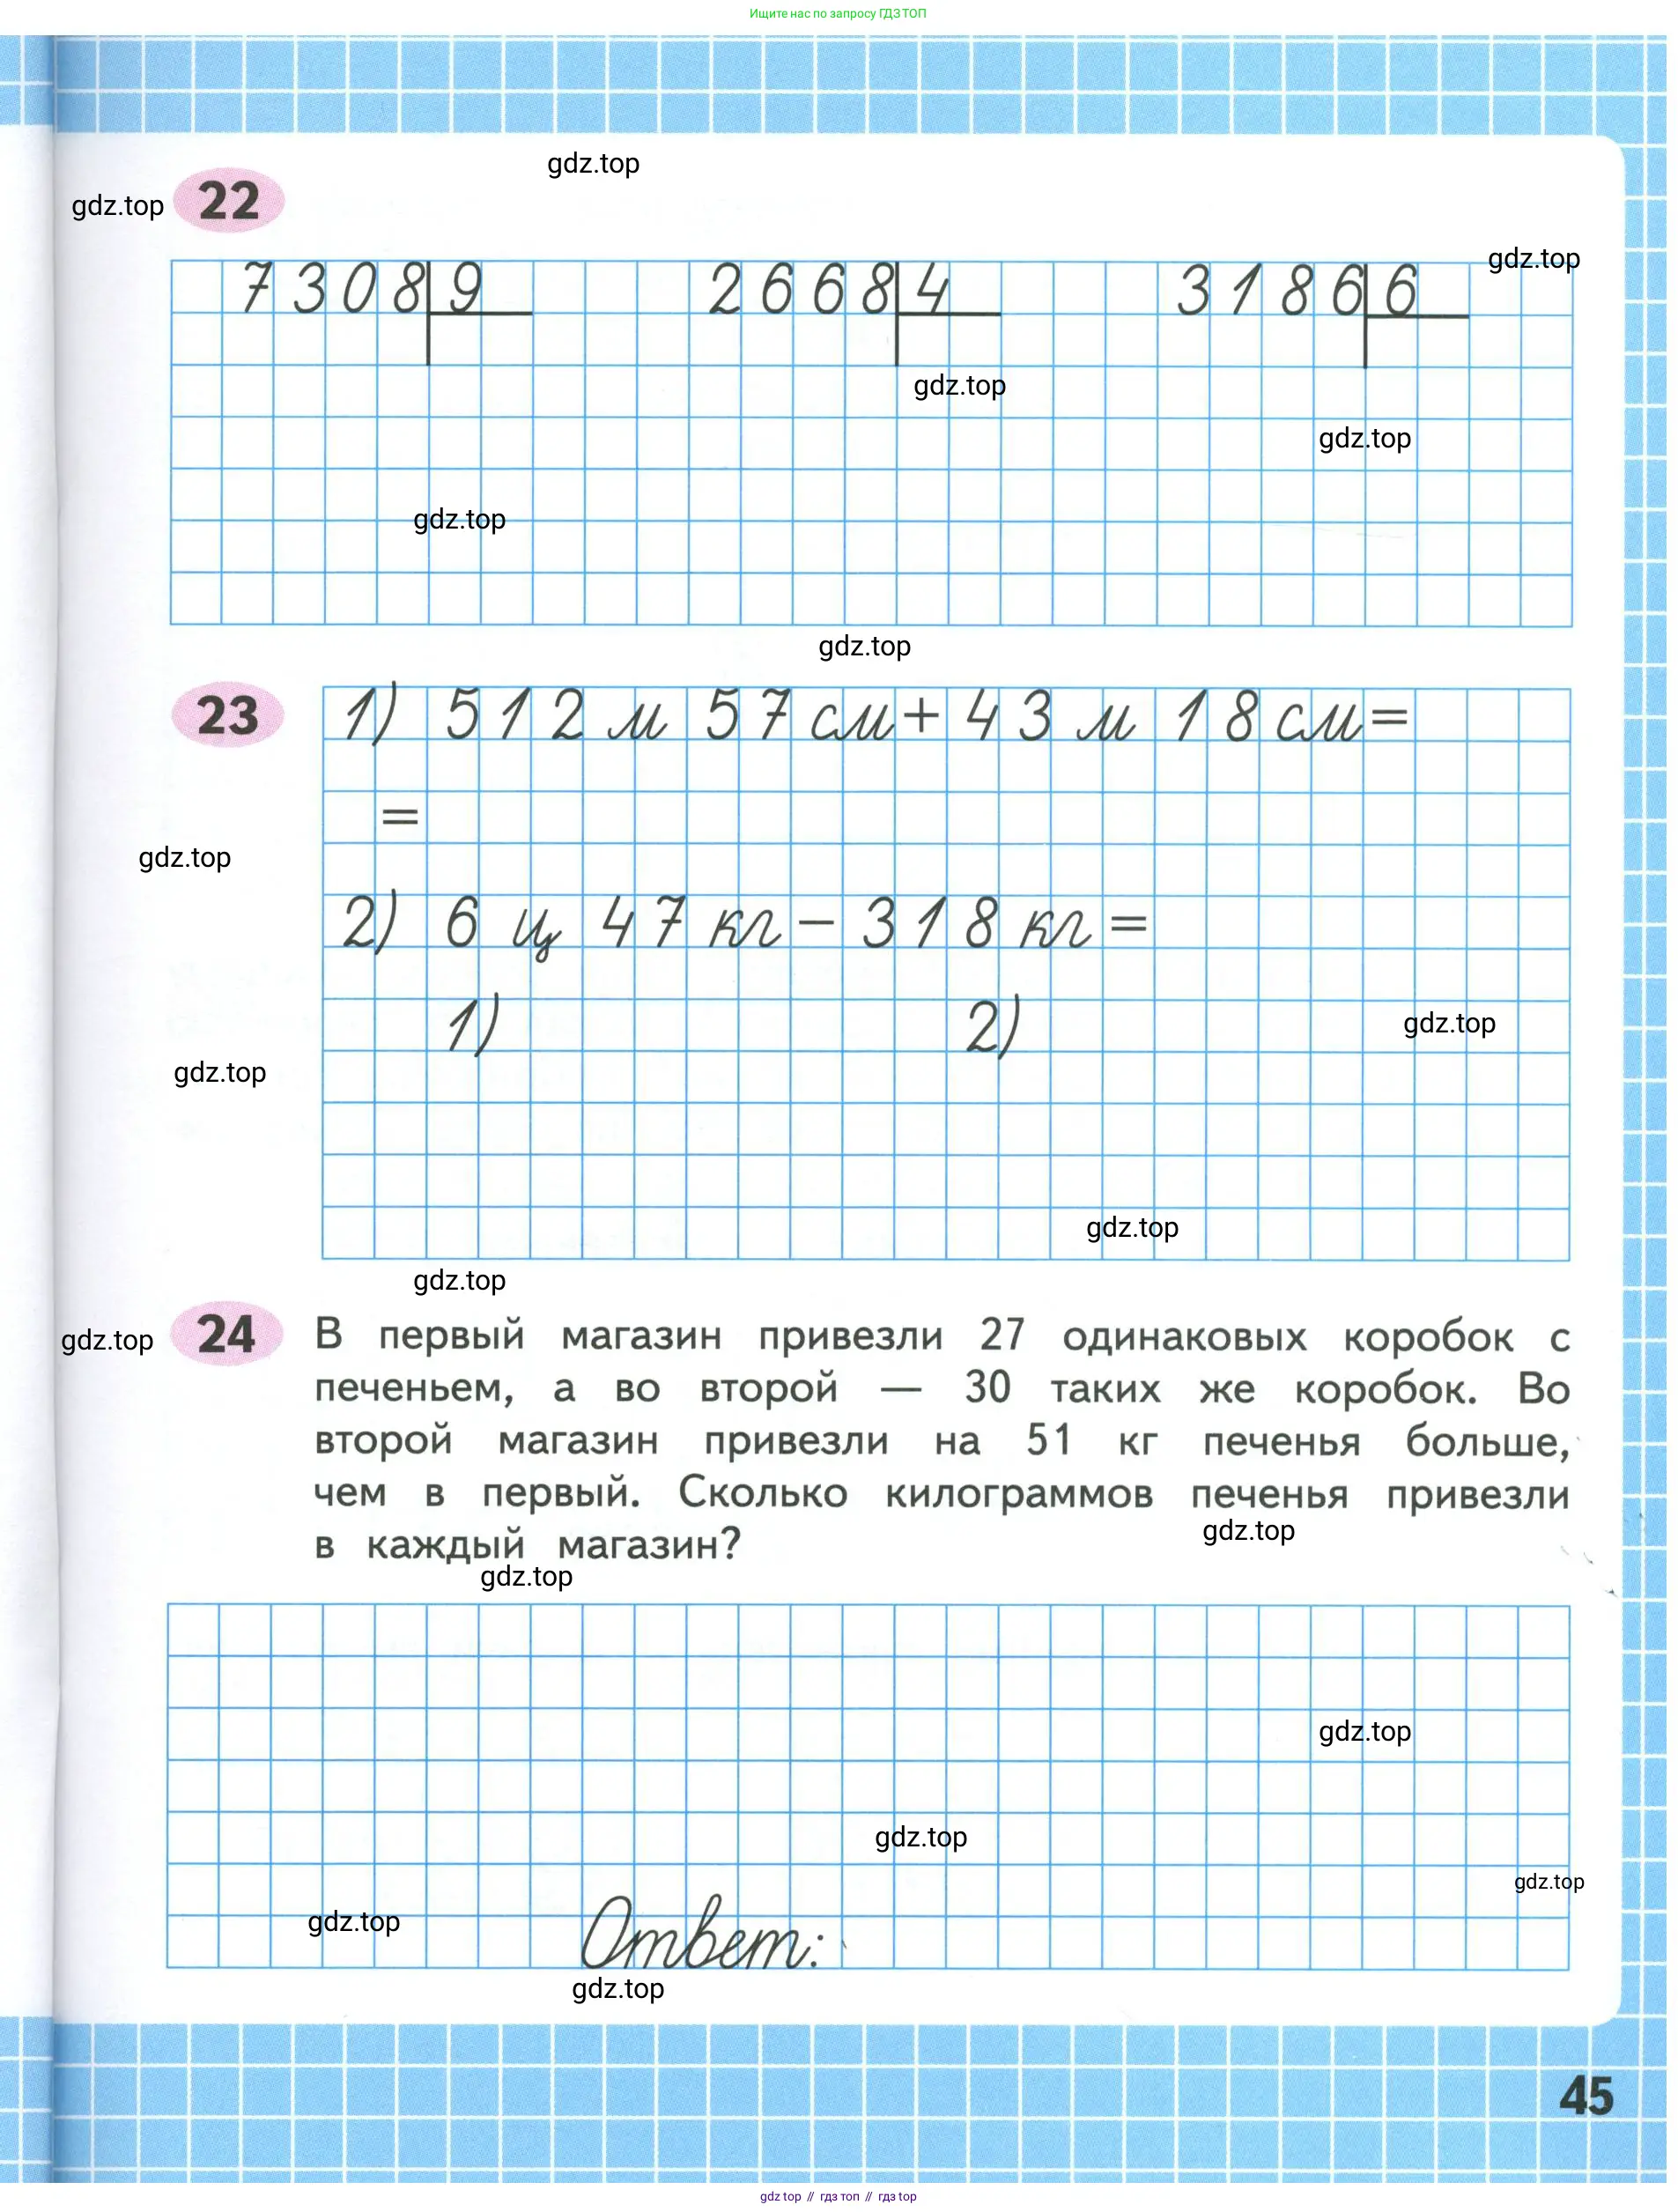 Ищите нас по запросу ГДЗ ТОП
gdz.top
gdz.top 22
gdz.top
7308|9 2668|4 3186|6
gdz.top
gdz.top
gdz.top
gdz.top
23 1) 512 м 57 см + 43 м 18 см =
=
gdz.top
2) 6 ц 47 кг − 318 кг =
1) 2)
gdz.top
gdz.top
gdz.top
gdz.top
gdz.top 24 В первый магазин привезли 27 одинаковых коробок с
печеньем, а во второй — 30 таких же коробок. Во
второй магазин привезли на 51 кг печенья больше,
чем в первый. Сколько килограммов печенья привезли
в каждый магазин?
gdz.top
gdz.top
gdz.top
gdz.top
gdz.top
gdz.top
Ответ:
gdz.top
45
gdz top // гдз топ // гдз top